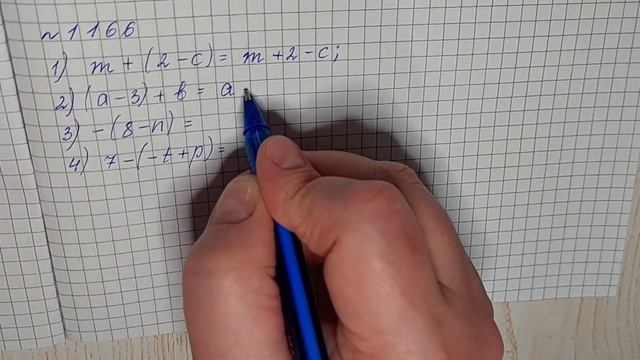 № 1166
1) m + (2 - c) = m + 2 - c;
2) (a - 3) + b = a
3) - (8 - n) =
4) 7 - (-t + p) =